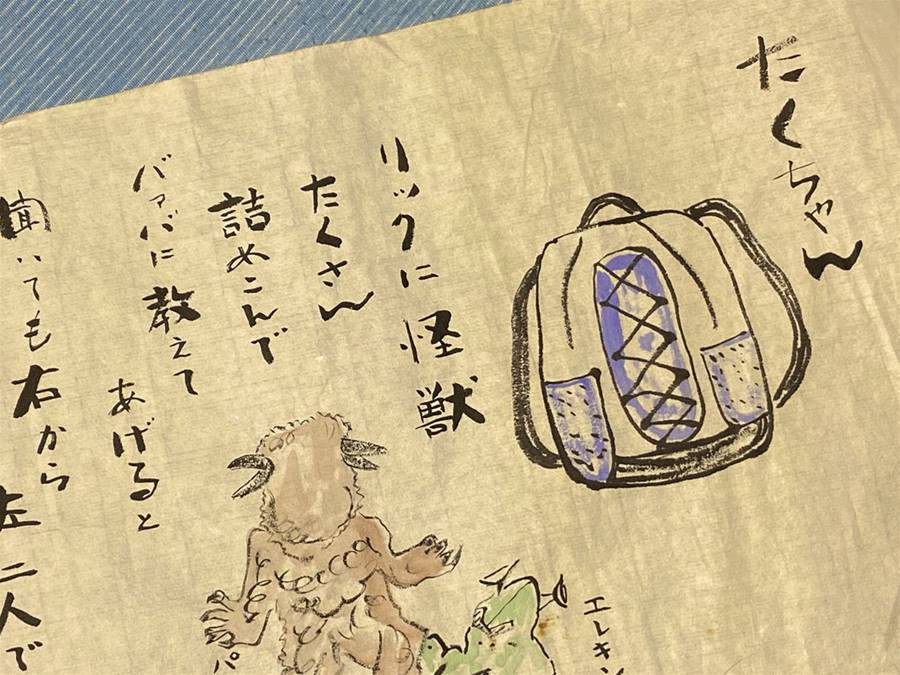 たくちゃん
リックに怪獣
たくさん
詰めこんで
バァバに教えて
あげると
聞いても右から
左 二人で
エレキン
パ